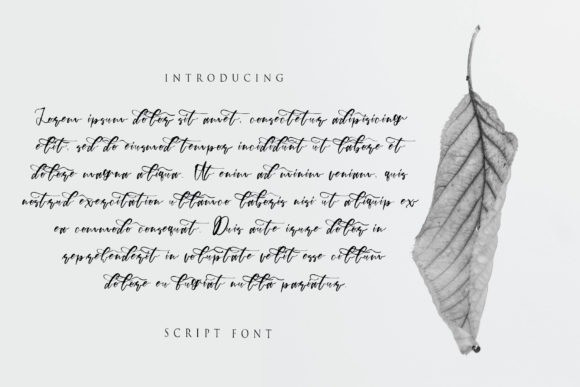 INTRODUCING
Lorem ipsum dolor sit amet, consectetur adipisicing
elit, sed do eiusmod tempor incididunt ut labore et
dolore magna aliqua. Ut enim ad minim veniam, quis
nostrud exercitation ullamco laboris nisi ut aliquip ex
ea commodo consequat. Duis aute irure dolor in
reprehenderit in voluptate velit esse cillum
dolore eu fugiat nulla pariatur.
SCRIPT FONT